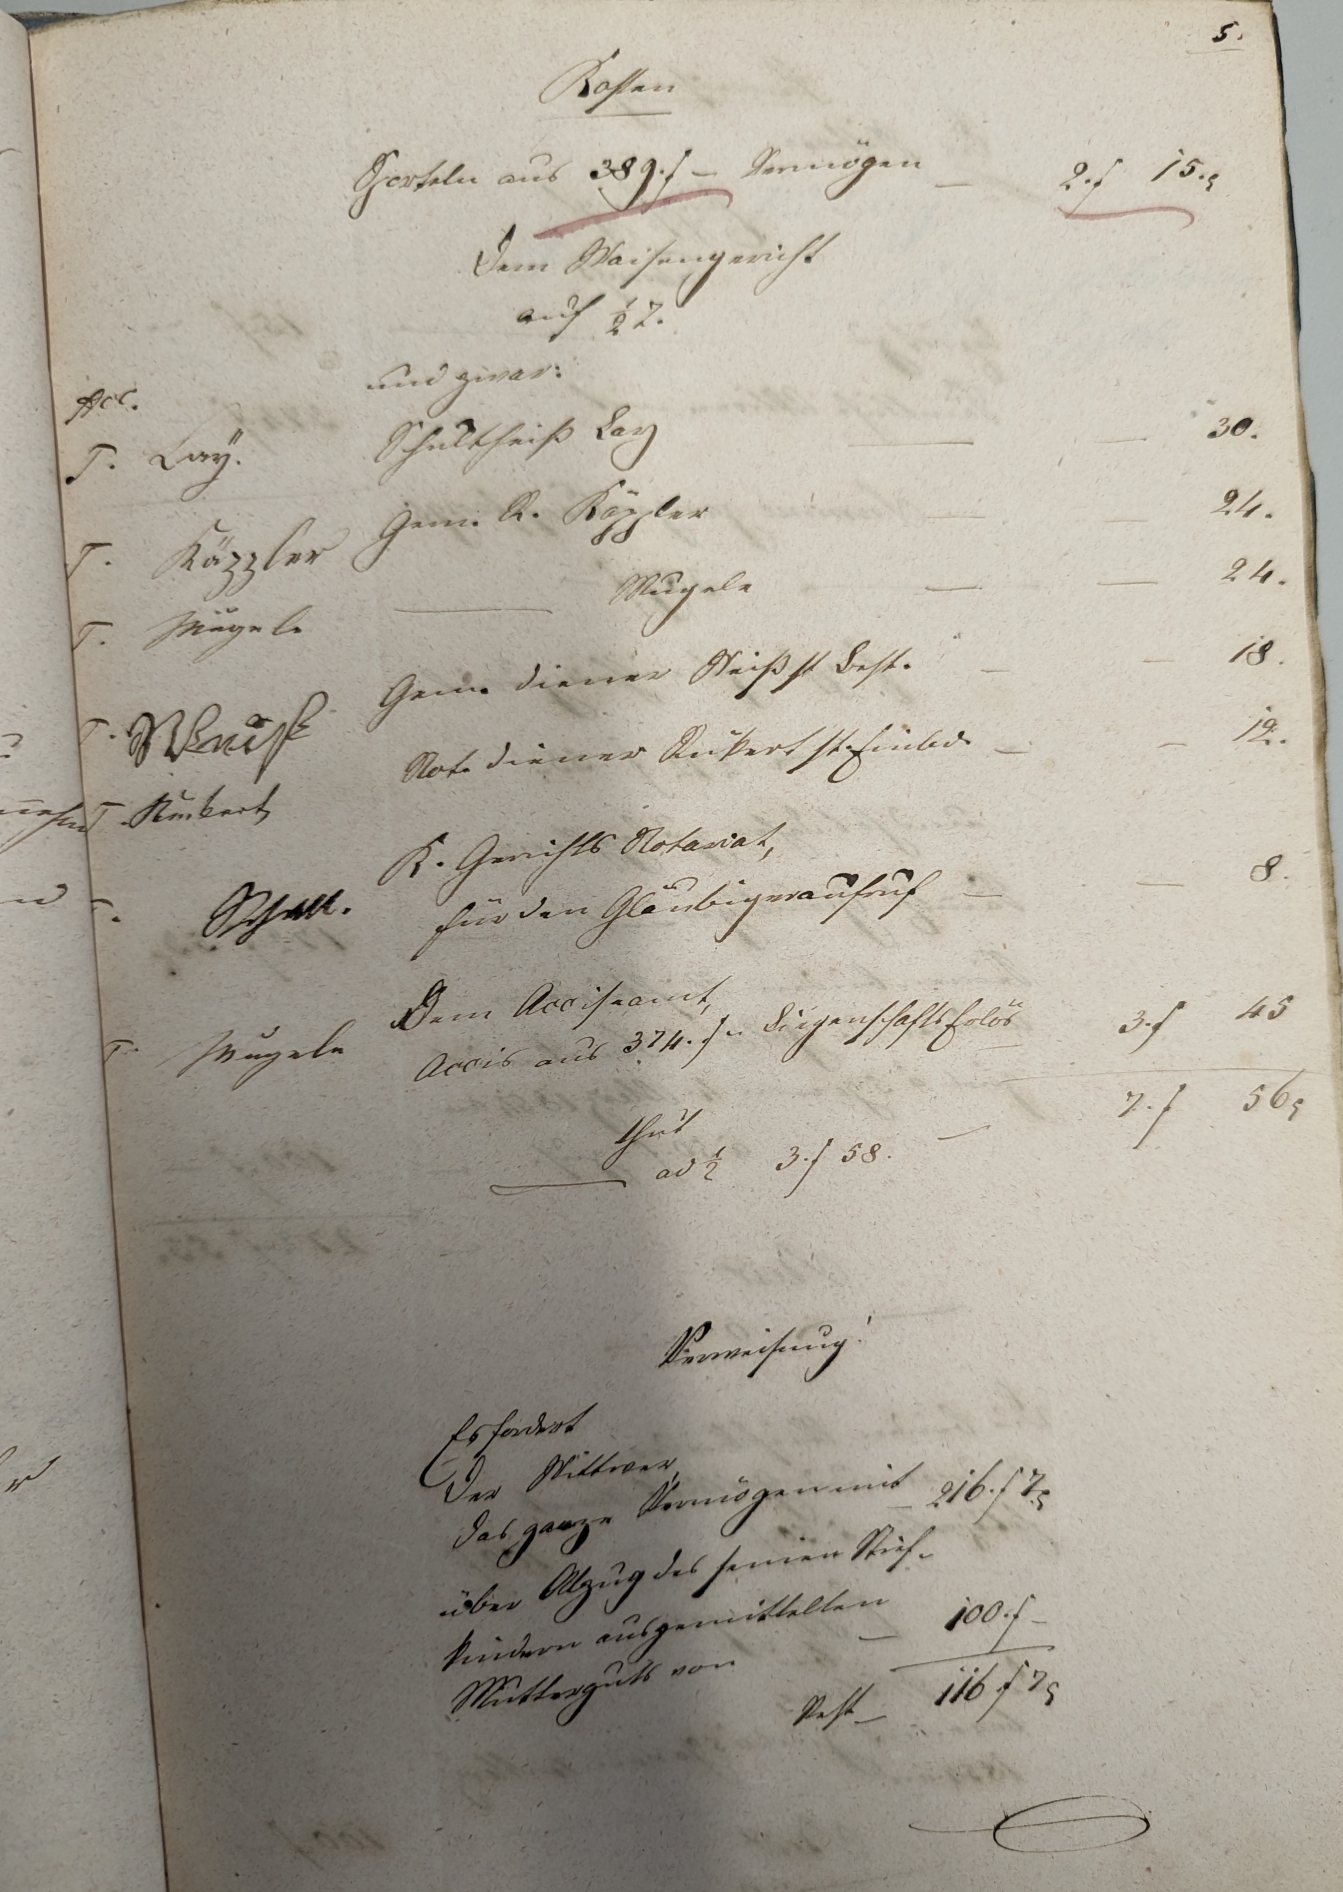 5.
Kosten
Sporteln aus 389. f – Vermögen – 2. f 15.
Dem Waisengericht
auf ½ T.
und zwar:
Acc.
T. Lay. Schultheiß Lay — — 30.
T. Käppler Gem. R. Käppler — — 24.
T. Mugele — Mugele — — 24.
T. Gem. diener Weiß st Best. — — 18.
T. Rükert Not. diener Rükert st. Einlad. — — 12.
K. Gerichts Notariat,
T. für den Gläubigeraufruf — — 8.
Dem Acciseamt,
T. Mugele Accis aus 374. f. Liegenschafts Erlös 3. f 45
thut — 7. f 56
— ad ½ 3. f 58.
Verweisung:
Es fordert
der Wittwer,
das ganze Vermögen mit – 216. f 7.
über Abzug des seinen Stief-
kindern ausgemittelten
Mutterguts von – 100. f –
Rest – 116 f 7